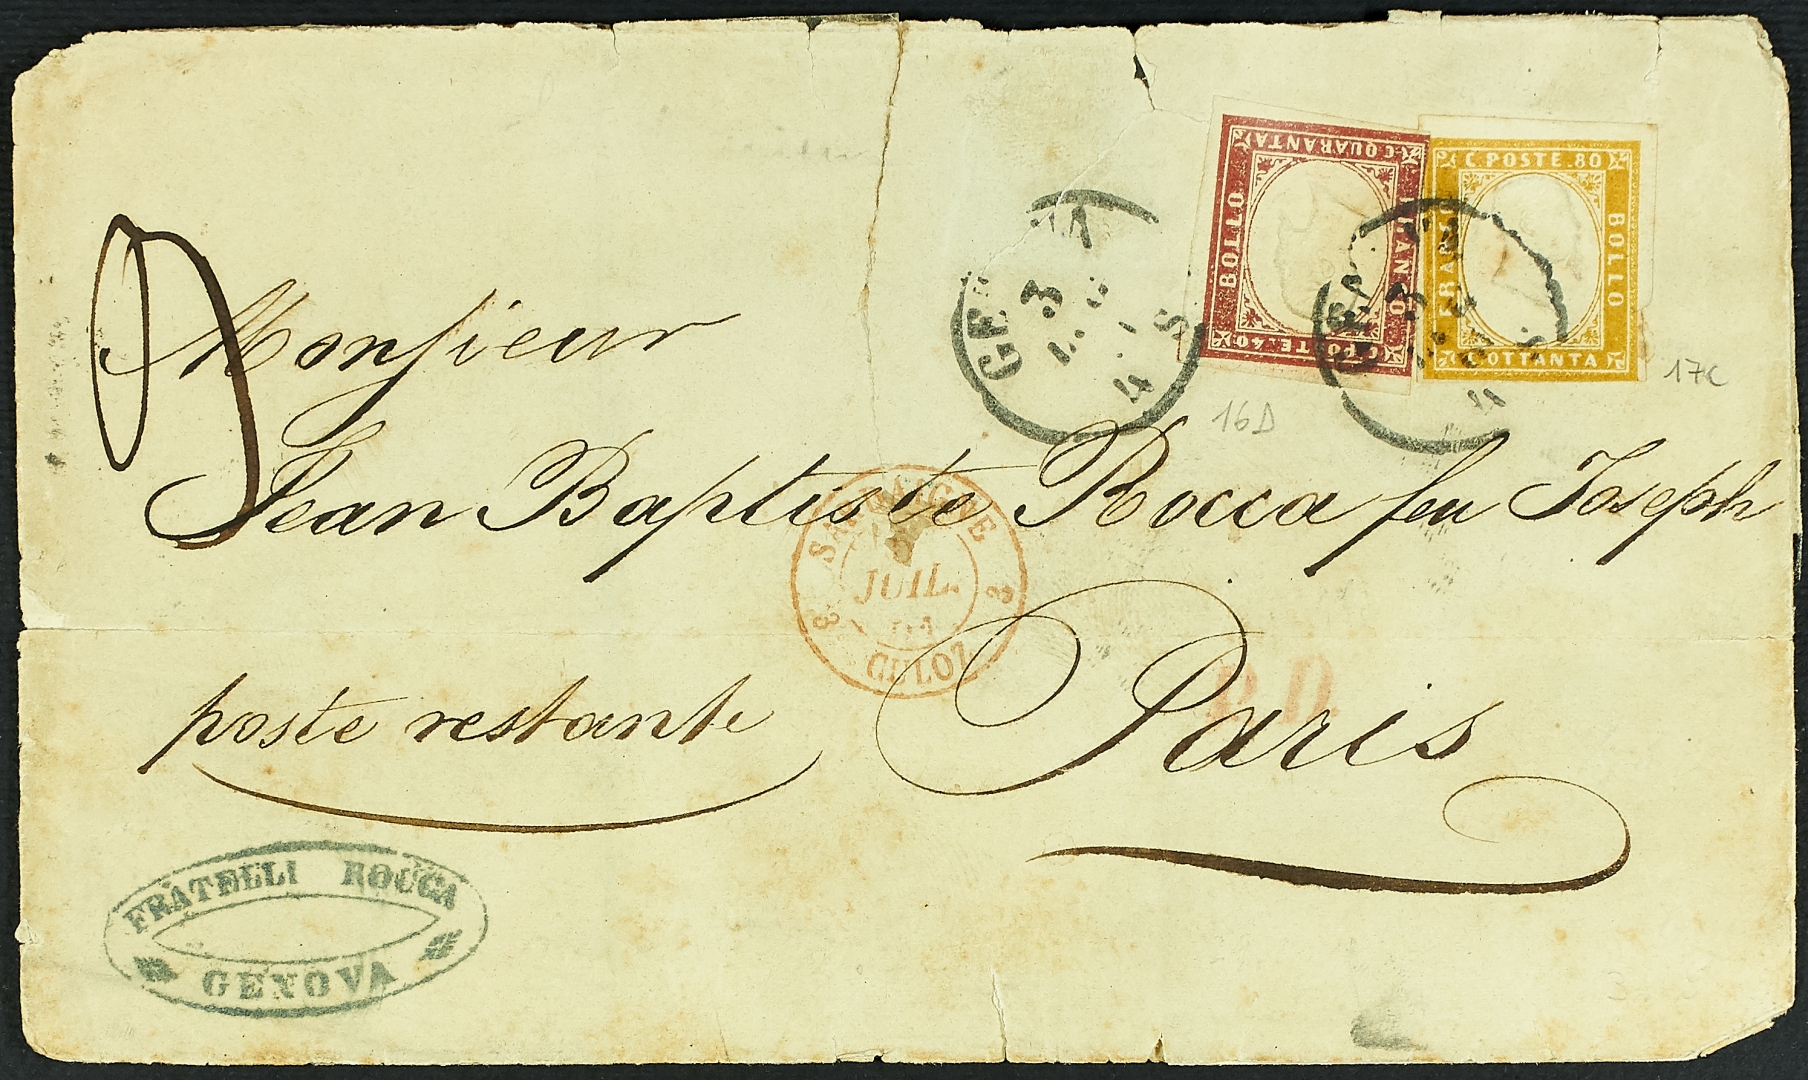 C. POSTE. 80
BOLLO
C. OTTANTA
C. QUARANTA
BOLLO
C. POSTE. 40
17c
16D
GE
3
4 S
3
4
Monsieur
Jean Baptiste Rocca feu Joseph
SARDAIGNE
JUIL.
3 CULOZ 3
poste restante
Paris
P.D.
FRATELLI ROCCA
GENOVA